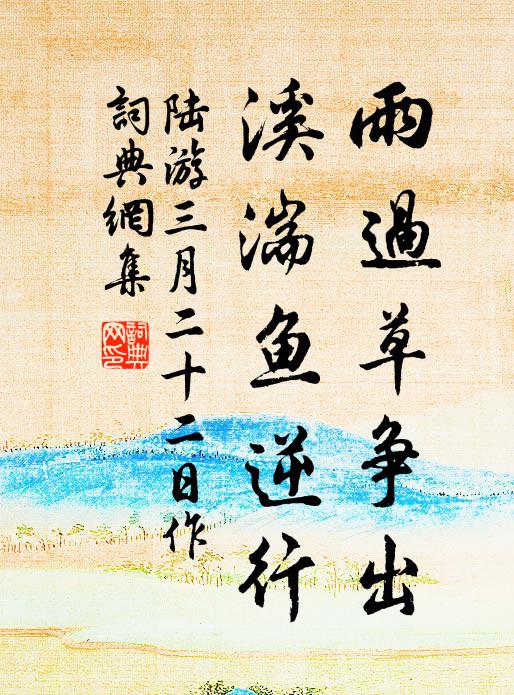 雨過草争出
溪湍鱼逆行
陆游三月二十二日作
詞典網集
詞典网印